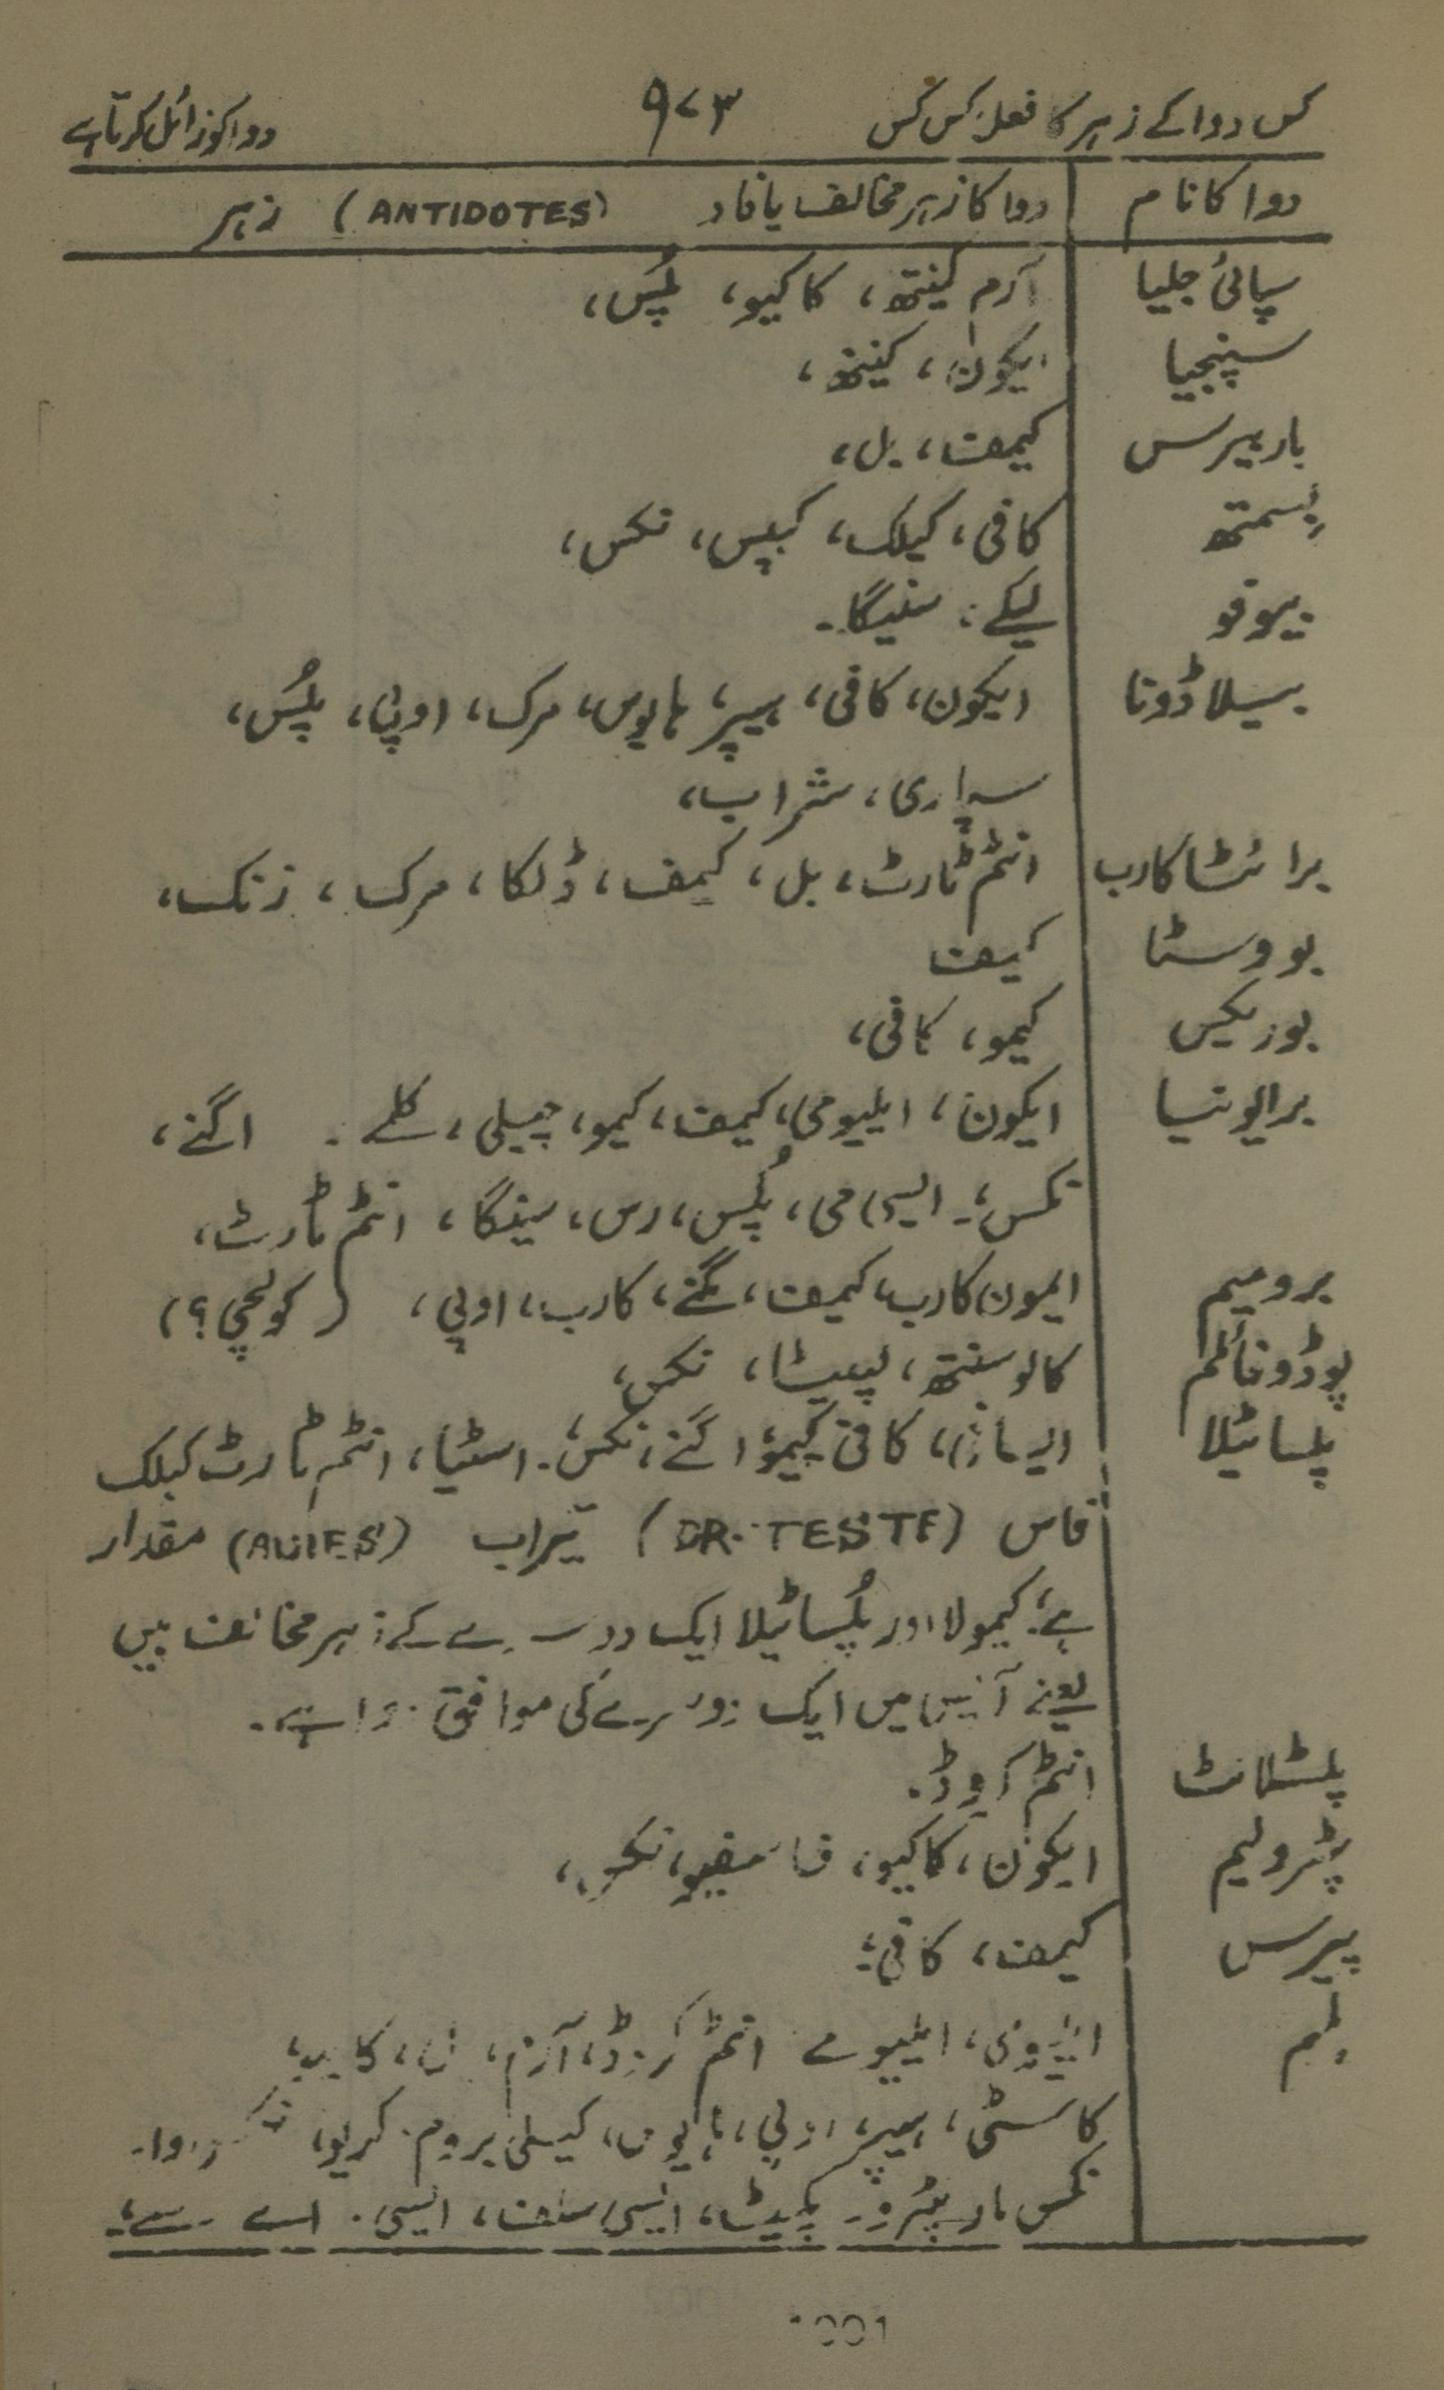 کس دوا کے زہر کا فعل کس کس ۹۷۳ دوا کو زائل کرتا ہے
دوا کا نام دوا کا زہر مخالف یا فاد (ANTIDOTES) زہر
سپائی جلیا آرم کینتھ، کاکیو، پلس،
سپنجیا ایکون، کینتھ،
باربیرس کیمف، بل،
بسمتھ کافی، کیلک، کیپس، نکس،
بیوفو لیکے، سنیگا۔
بیلاڈونا ایکون، کافی، ہیپر، ہایوس، مرک، اوپی، پلس،
سپاری، شراب،
برائٹا کارب انٹم ٹارٹ، بل، کیمف، ڈلکا، مرک، زنک،
بووسٹا کیمف
بوریکس کیمو، کافی،
برایونیا ایکون، ایلیومی، کیمف، کیمو، چیلی، کلے۔ اگنے،
نکس، ایسڈ می، پلس، رس، سینگا، انٹم ٹارٹ،
برومیم ایمون کارب، کیمف، مگنے، کارب، اوپی، (کولچی؟)
پوڈوفائلم کالوسنتھ، لپٹیڈا، نکس،
پلساٹیلا کافی، کیمو، اگنے، نکس، اسٹیا، انٹم ٹارٹ کیلک
فاس (DR. TESTE) تیزاب مقدار
ہے، کیمولا اور پلساٹیلا ایک دوسرے کے زہر مخالف ہیں
یعنے آپس میں ایک دوسرے کی موافق دوا ہے۔
پلسٹلانٹ انٹم کروڈ۔
پٹرولیم ایکون، کاکیو، فاسفیو، نکس،
پیرس کیمف، کافی،
پلبم ایلیومے انٹم کروڈ، آرم،
کاسٹی، ہیپر، اوپی، ہایوس، کیلی بروم، کریو،
نکس پٹرو، ایسی سلف، ایسی۔
1001